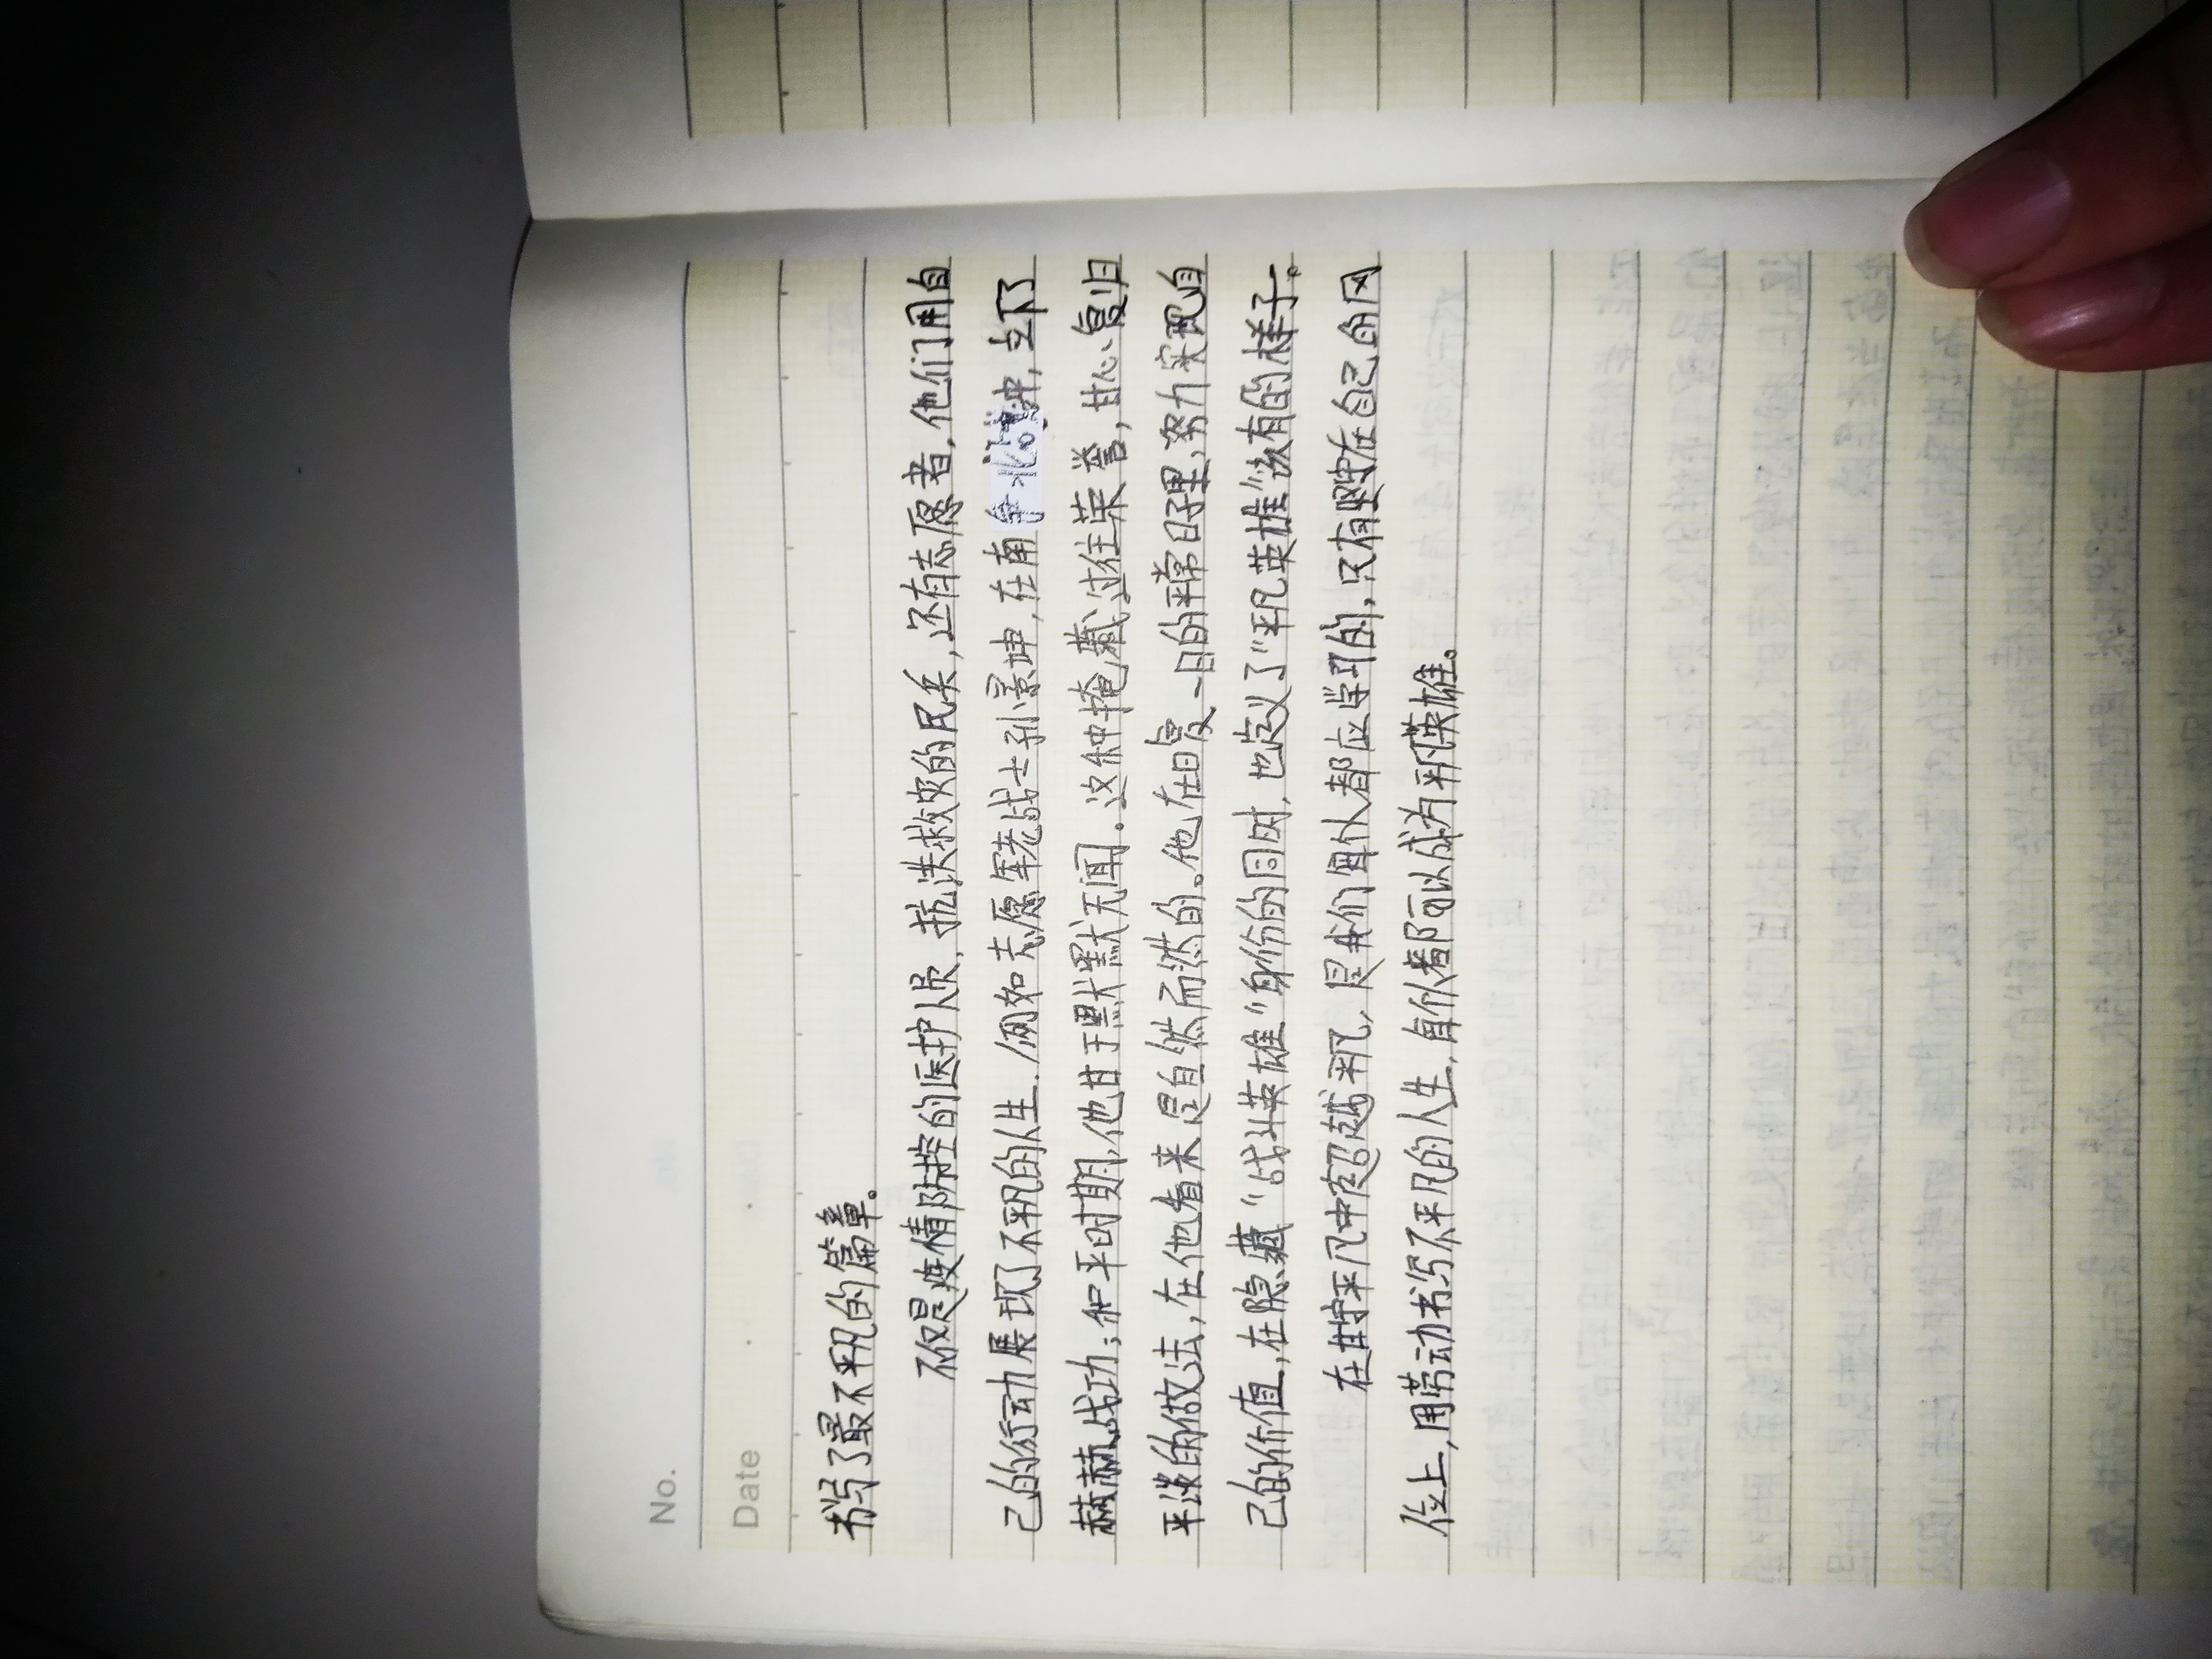 No.
Date
书写了最不平凡的篇章。
不仅是疫情防控的医护人员，抗洪救灾的民兵，还有志愿者，他们用自
己的行动展现了不平凡的人生．例如志愿军老战士孙景坤，在南征北战中，立下
赫赫战功；和平时期，他甘于默默无闻．这种掩藏过往荣誉，甘心复归
平淡的做法，在他看来是自然而然的。他在日复一日的平常日子里，努力实现自
己的价值，在隐藏“战斗英雄”身份的同时，也定义了“平凡英雄”该有的样子。
在平凡中超越平凡，是我们每个人都应学习的，只有坚守在自己的岗
位上，用劳动书写不平凡的人生，每个人都可以成为平凡英雄。